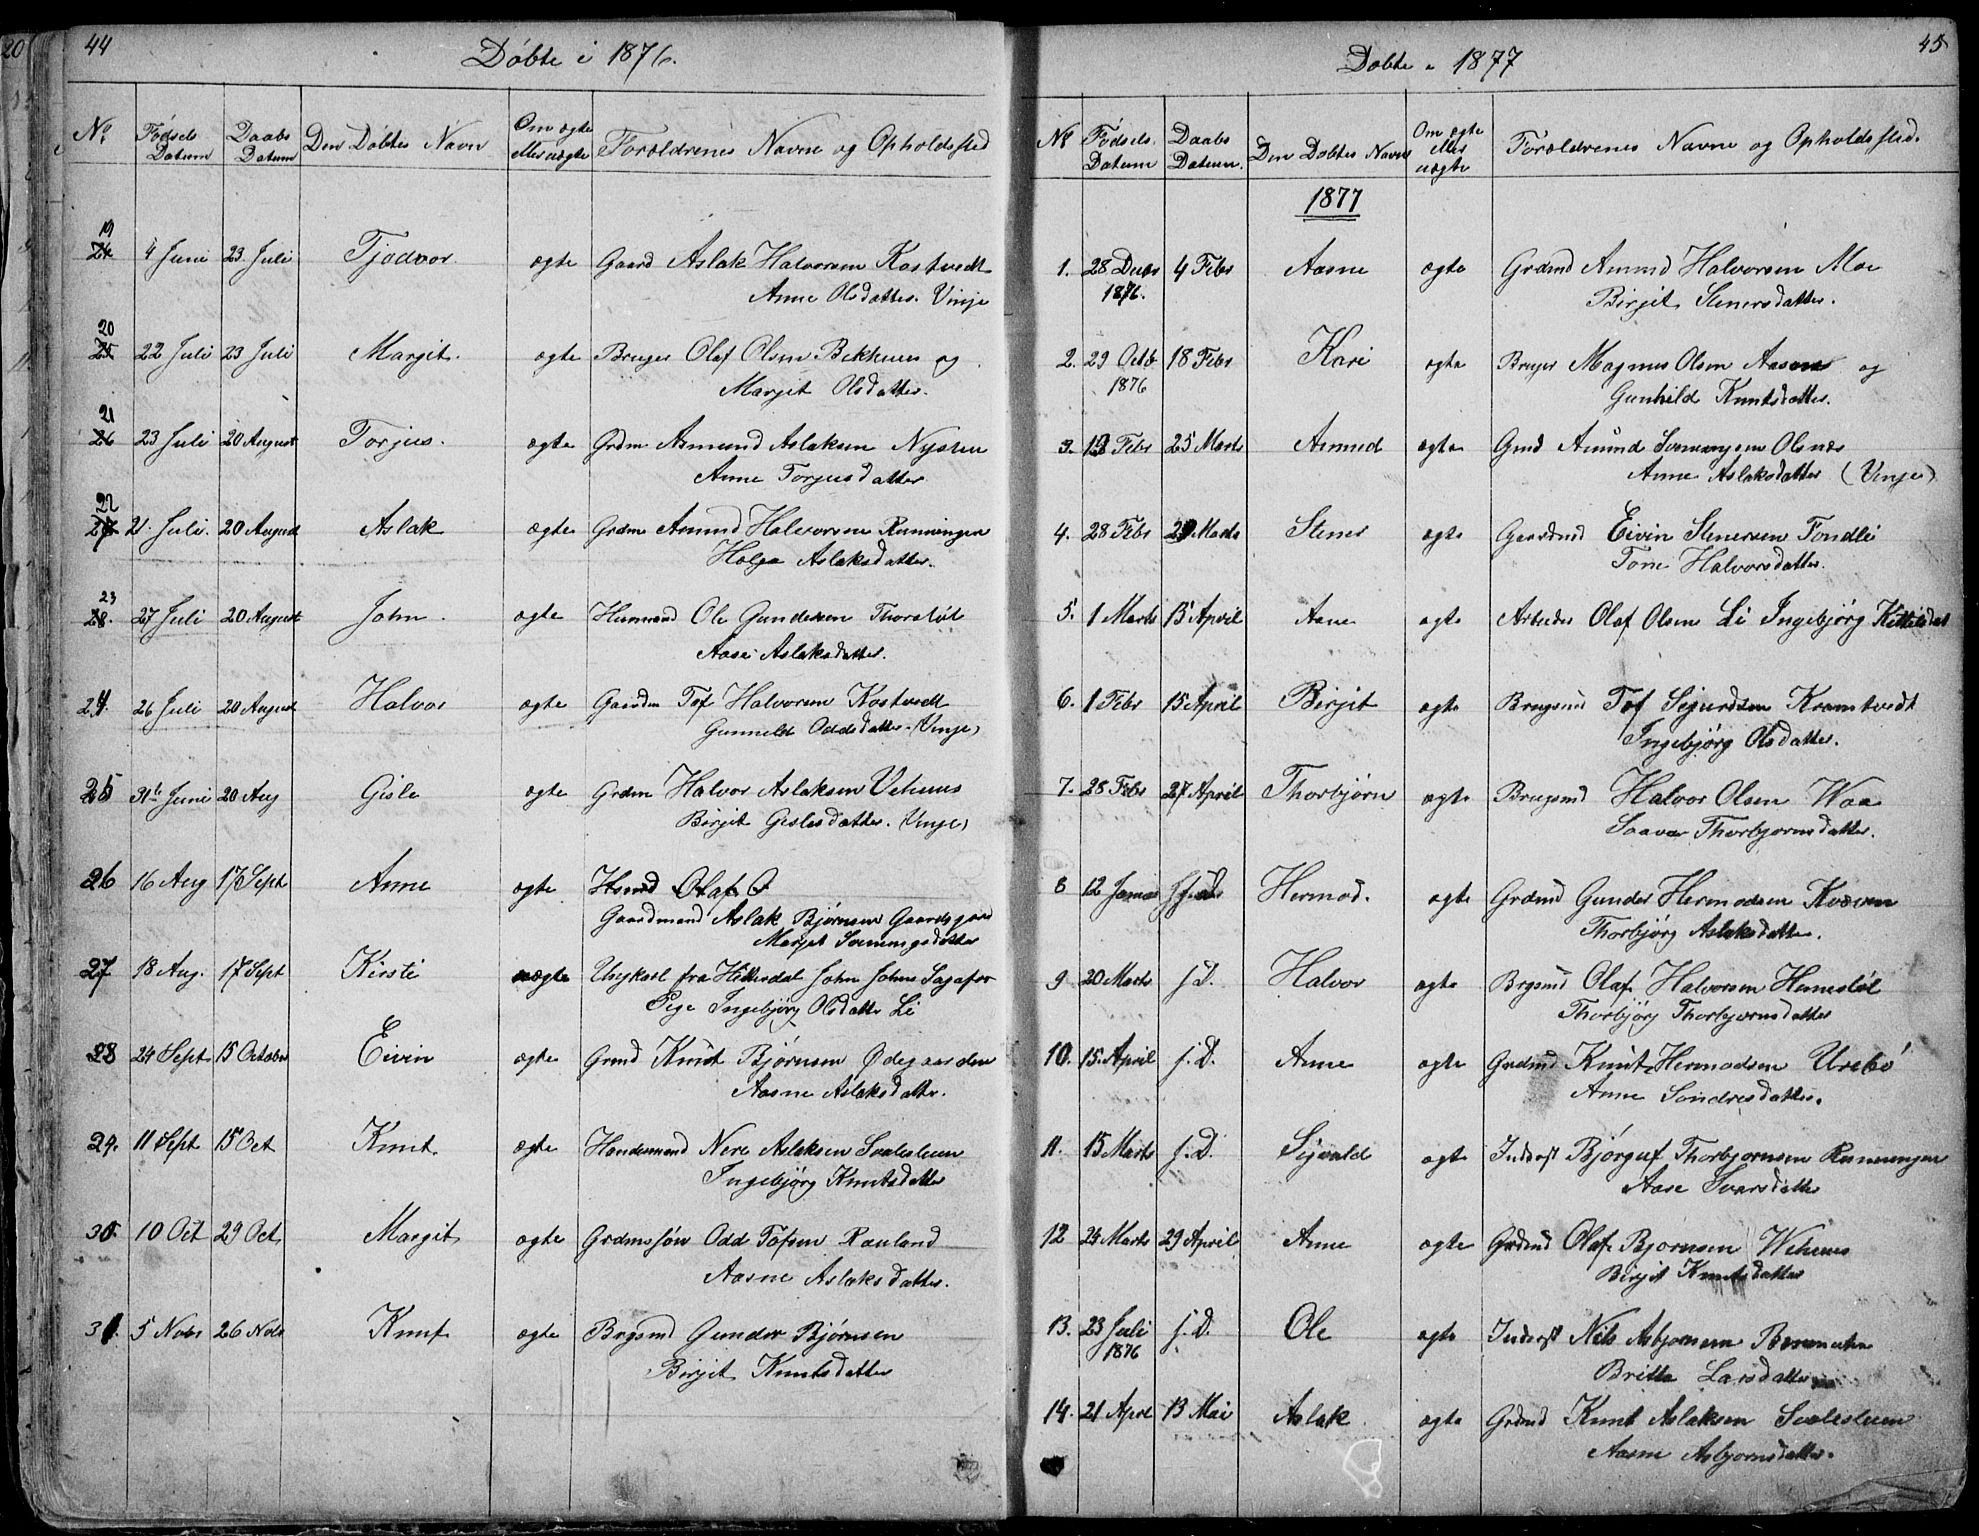 44
Döbte i 1876.
No
Födsels Datum
Daabs Datum
Den Döbtes Navn
Om ægte eller uægte
Forældrenes Navne og Opholdssted
19 24 4 Juni 23 Juli Tjodvor ægte Gaard Aslak Halvorsen Kostvedt
Anne Olsdatter. Vinje
20 25 22 Juli 23 Juli Margit. ægte Bruger Olaf Olsen Bekhuus og
Margit Olsdatter.
21 26 23 Juli 20 August Torjus. ægte Grdm Asmund Aslaksen Nystu
Anne Torjusdatter
22 27 21. Juli. 20 August Aslak ægte Grdm Amund Halvorsen Runningen
Helga Aslaksdatter.
23 28. 27 Juli 20 August John. ægte Husmand Ole Gundersen
Aase Aslaksdatter.
24 26 Juli 20 August Halvor ægte Gaardm Tof Halvorsen Kostvedt
Gunneld Oddsdatter. (Vinje)
25 31te Juni 20 Aug Gisle ægte Grdm Halvor Aslaksen Vehuus
Birgit Gislesdatter. (Vinje)
26 16 Aug 17 Sept Anne ægte Hsmd Olaf O
Gaardmand Aslak Björnsen Gaardsjord
Margit Svenungsdatter
27 18 Aug. 17 Sept Kirsti uægte Ungkarl fra Hitterdal John Johns
Pige Ingebjörg Olsdatter Li
28 24 Sept 15 October Eivin ægte Grmd Knut Björnsen Ödegaarden
Aasne Aslaksdatter.
29. 11 Sept 15 Oct Knut. ægte Handesmand Nere Aslaksen
Ingebjörg Knutsdatter
30. 10 Oct 29 Oct. Margit ægte Grdmssön Odd Tofsen Rauland
Aasne Aslaksdatter.
31. 5 Nobr 26 Nobr Knut ægte Brgsmd Gunder Björnsen
Birgit Knutsdatter
45
Döbte i 1877
No
Födsels. Datum
Daabs Datum.
Den Döbtes Navn
Om ægte eller uægte
Forældrenes Navne og Opholdssted.
1877
1. 28 Decbr 4 Febr Aasne ægte Grdmd Amund Halvorsen Moe
1876. Birgit Stenersdatter.
2. 29 Octb 18 Febr Kari ægte Bruger Magnus Olsen og
1876 Gunhild Knutsdatter.
3. 19 Febr 25 Marts Amund ægte Gmd Amund Svenungsen Olsnes
Anne Aslaksdatter (Vinje)
4. 28 Febr Marts Stener ægte Gaardmd Eivin Stenersen Fondli
Tone Halvorsdatter.
5. 1 Marts 15 April Aane ægte Arbeider Olaf Olsen Li Ingebjörg Kittilsdat
6. 1 Febr 15 April Birgit ægte Brugsmd Tof Sigurdsen Kromtvedt
Ingebjörg Olsdatter.
7. 28 Febr 27 April Thorbjörn ægte Brugsmd Halvor Olsen Waa
Saavar Thorbjornsdatter.
8 12 Januar Hermod. ægte Grdmd Gunder Hermodsen Kvæven
Thorbjörg Aslaksdatter.
9 20 Marts j D. Halvor ægte Brgsmd Olaf Halvorsen
Thorbjörg Thorbjörnsdatter
10. 15. April j. D. Anne ægte Grdmd Knut Hermodsen Urebö
Anne Sondresdatter.
11. 15 Marts j. D. Sigvald ægte Inderst Björguf Thorbjornsen Runningen
Aase Ivarsdatter
12 24 Marts 29 April Anne ægte Grdmd Olaf Bjornsen Wehuus
Birgit Knutsdatter
13. 23 Juli j. D. Ole ægte Inderst Nils Asbjornsen
1876 Britta Larsdatter
14. 21 Aprl 13 Mai Aslak ægte Grdmd Knut Aslaksen
Aasne Asbjornsdatter.